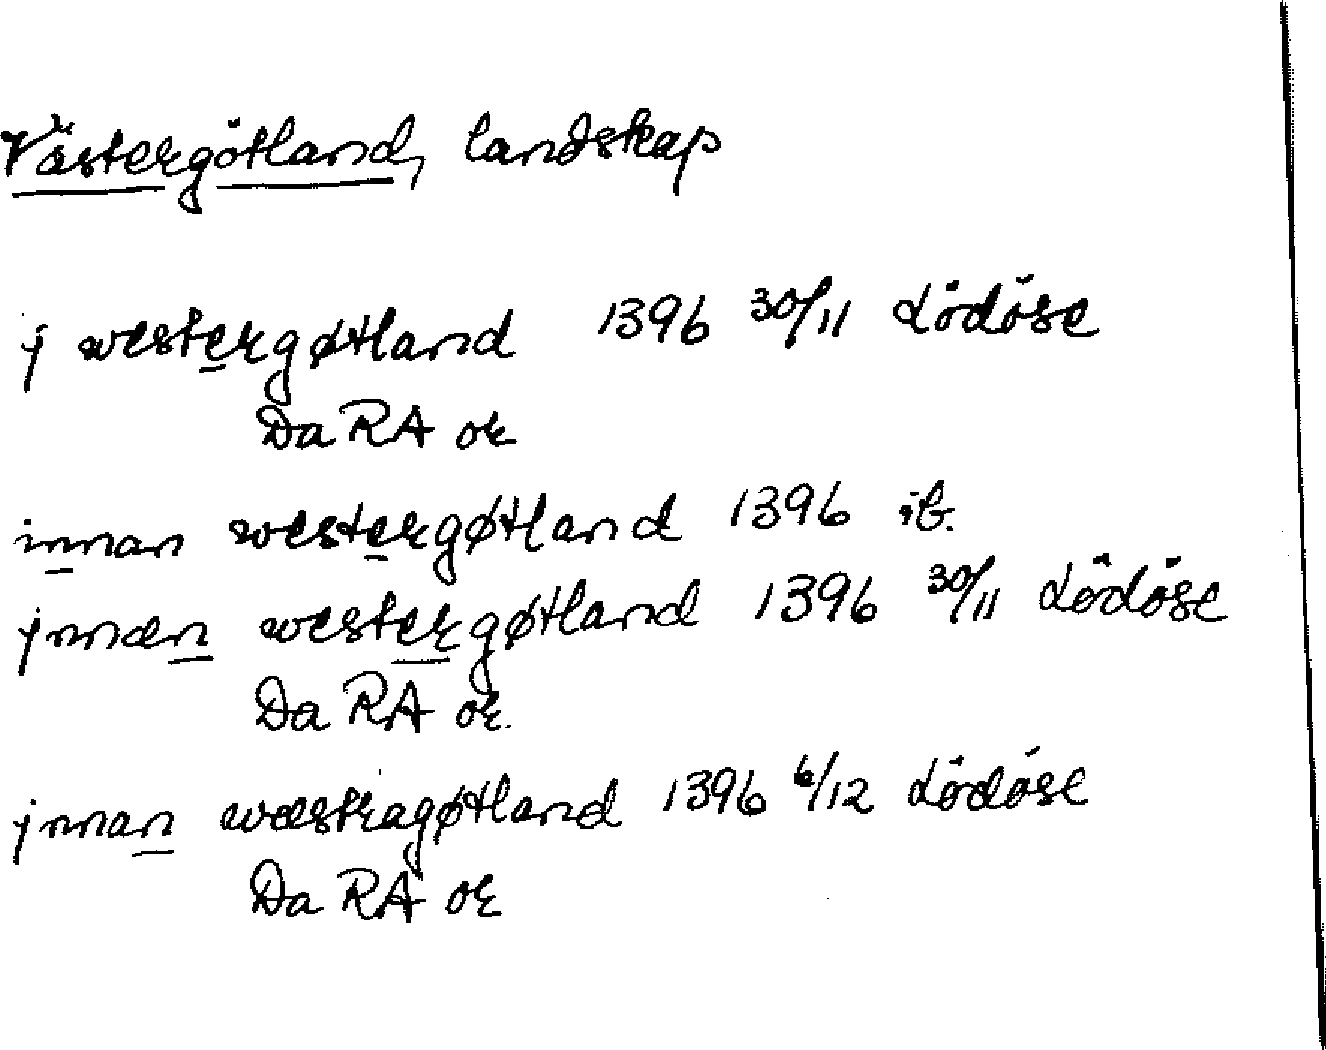 Västergötland, landskap
j westergøtland 1396 30/11 Lödöse
Da RA or
innan westergøtland 1396 ib.
jnnæn westergøtland 1396 30/11 Lödöse
Da RA or.
jnnan wæstragøtland 1396 6/12 Lödöse
Da RA or